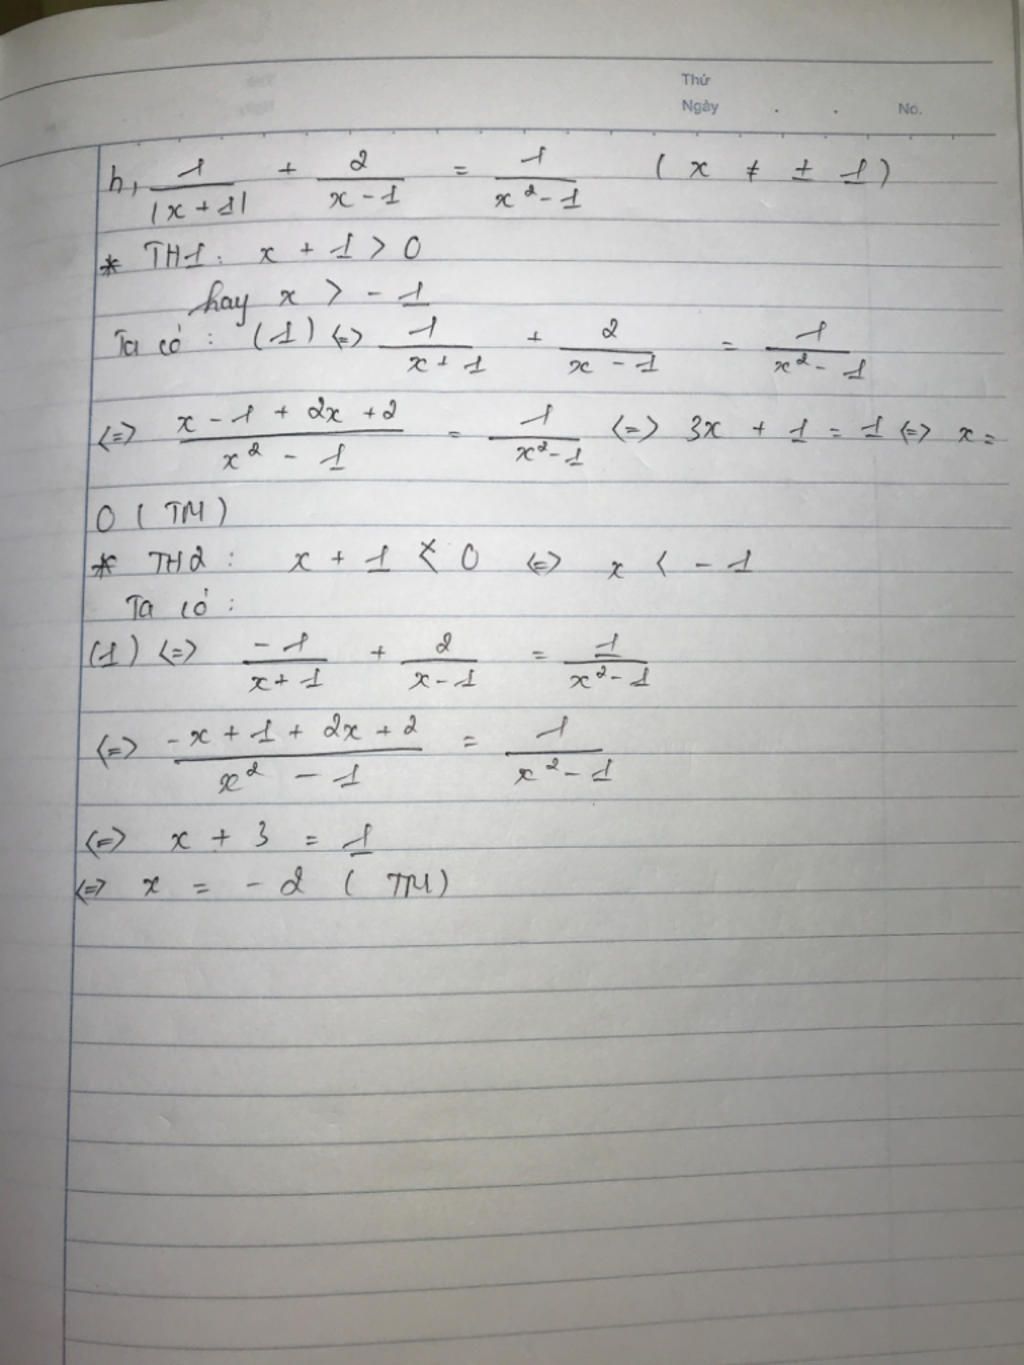 Thứ
Ngày . . No.
h, 1/|x+1| + 2/(x-1) = 1/(x²-1) (x ≠ ± 1)
* TH1: x + 1 > 0
hay x > -1
Ta có: (1) <=> 1/(x+1) + 2/(x-1) = 1/(x²-1)
<=> (x-1+2x+2)/(x²-1) = 1/(x²-1) <=> 3x + 1 = 1 <=> x =
0 (TM)
* TH2: x + 1 < 0 <=> x < -1
Ta có:
(1) <=> -1/(x+1) + 2/(x-1) = 1/(x²-1)
<=> (-x+1+2x+2)/(x²-1) = 1/(x²-1)
<=> x + 3 = 1
<=> x = -2 (TM)